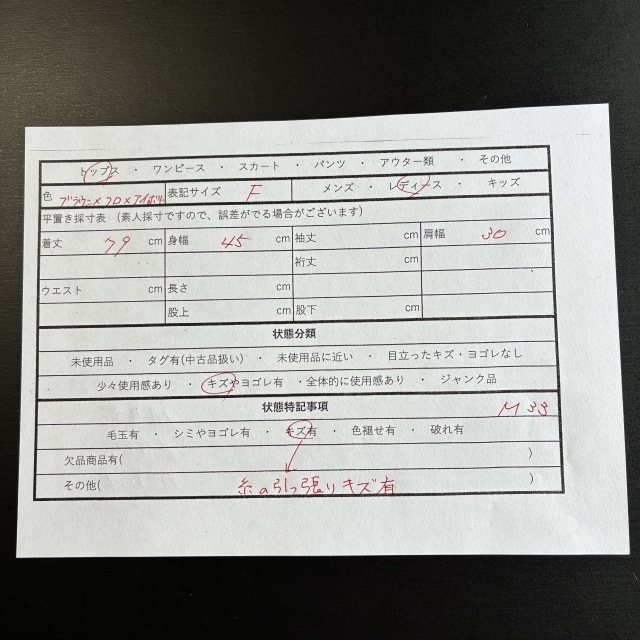 トップス ・ ワンピース ・ スカート ・ パンツ ・ アウター類 ・ その他
色 ブラウン×クロ×アイボリー 表記サイズ F メンズ ・ レディース ・ キッズ
平置き採寸表 (素人採寸ですので、誤差がでる場合がございます)
着丈 79 cm 身幅 45 cm 袖丈 cm 肩幅 30 cm
裄丈 cm
ウエスト cm 長さ cm
股上 cm 股下 cm
状態分類
未使用品 ・ タグ有(中古品扱い) ・ 未使用品に近い ・ 目立ったキズ・ヨゴレなし
少々使用感あり ・ キズやヨゴレ有 ・全体的に使用感あり ・ ジャンク品
状態特記事項 M 33
毛玉有 ・ シミやヨゴレ有 ・ キズ有 ・ 色褪せ有 ・ 破れ有
欠品商品有( )
その他( 糸の引っ張りキズ有 )